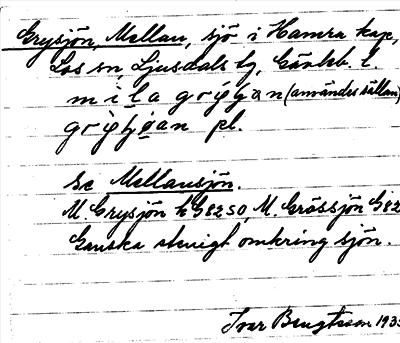 Grysjön, Mellan, sjö i Hamra kap,
Los sn, Ljusdals tg, Gävleb. l.
(användes sällan)
pl.
Se Mellansjön.
M. Grysjön k G82 SO, M. Grössjön G82
Ganska stenigt omkring sjön.
Ivar Bengtsson 193